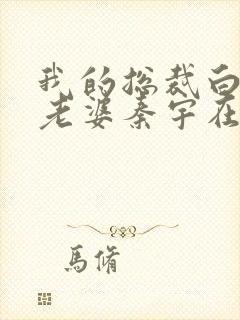 我的总裁白
老婆秦宇在
馬脩